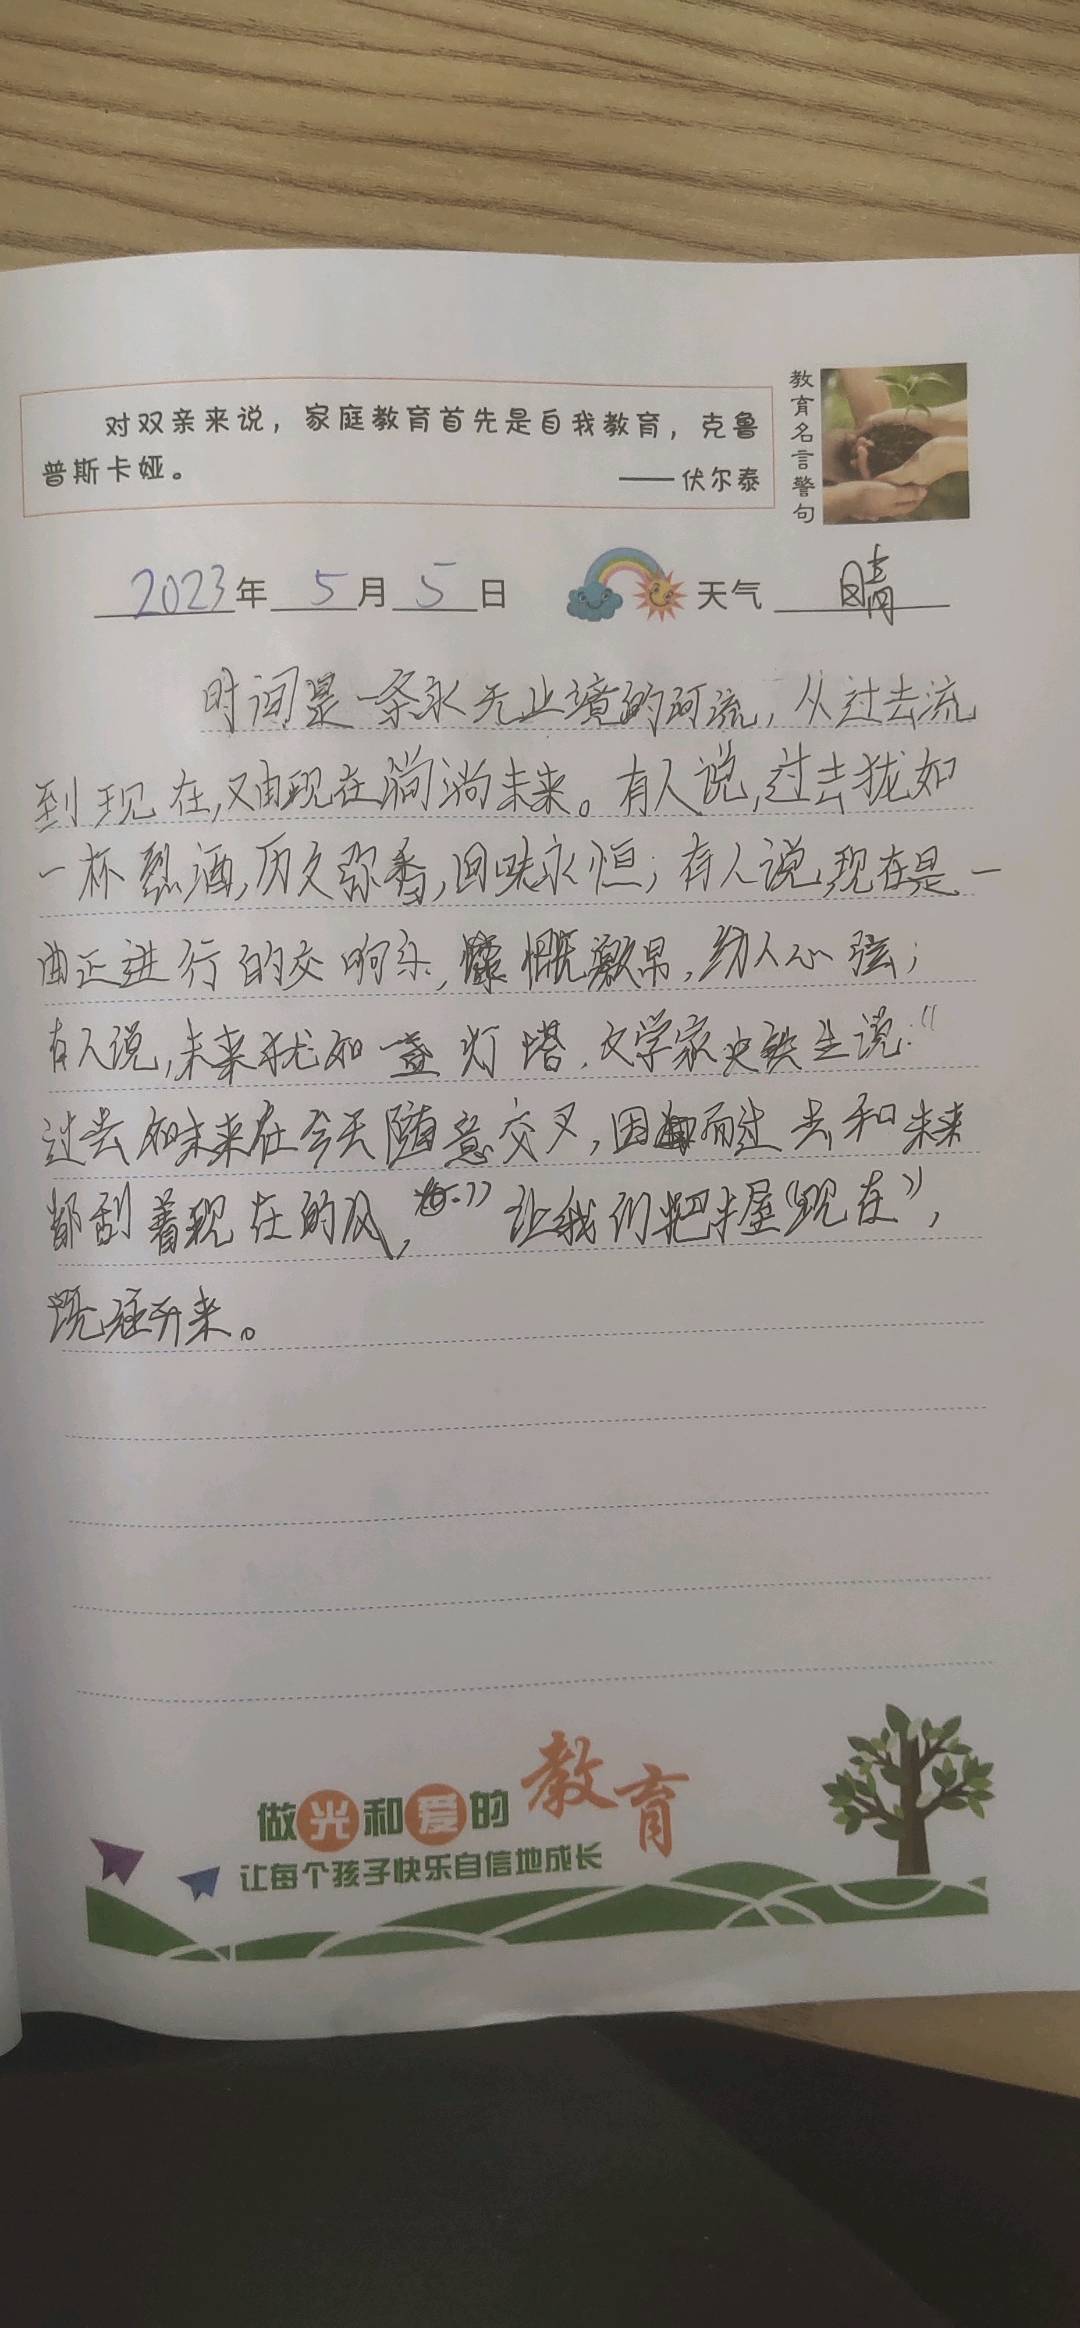 对双亲来说，家庭教育首先是自我教育，克鲁
普斯卡娅。
——伏尔泰
教育名言警句
2023年 5月 5日 天气 晴
时间是一条永无止境的河流，从过去流
到现在，又由现在淌淌未来。有人说，过去犹如
一杯烈酒，历久弥香，回味永恒；有人说，现在是一
曲正进行的交响乐，慷慨激昂，纫人心弦；
有人说，未来犹如一盏灯塔，文学家史铁生说：“
过去如未来在今天随意交叉，因而过去和未来
都刮着现在的风，”让我们把握“现在”，
既往开来。
做光和爱的教育
让每个孩子快乐自信地成长